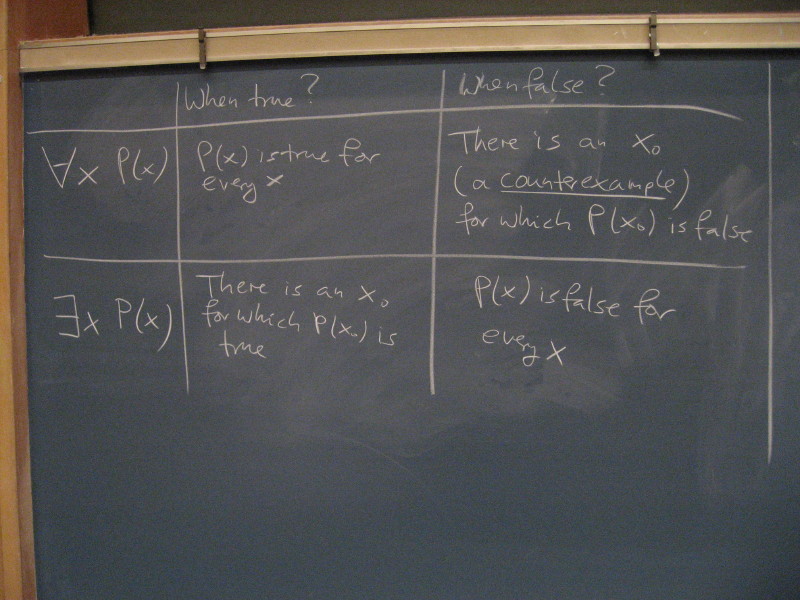 When true?
When false?
∀x P(x)
P(x) is true for
every x
There is an x₀
(a counterexample)
for which P(x₀) is false
∃x P(x)
There is an x₀
for which P(x₀) is
true
P(x) is false for
every x